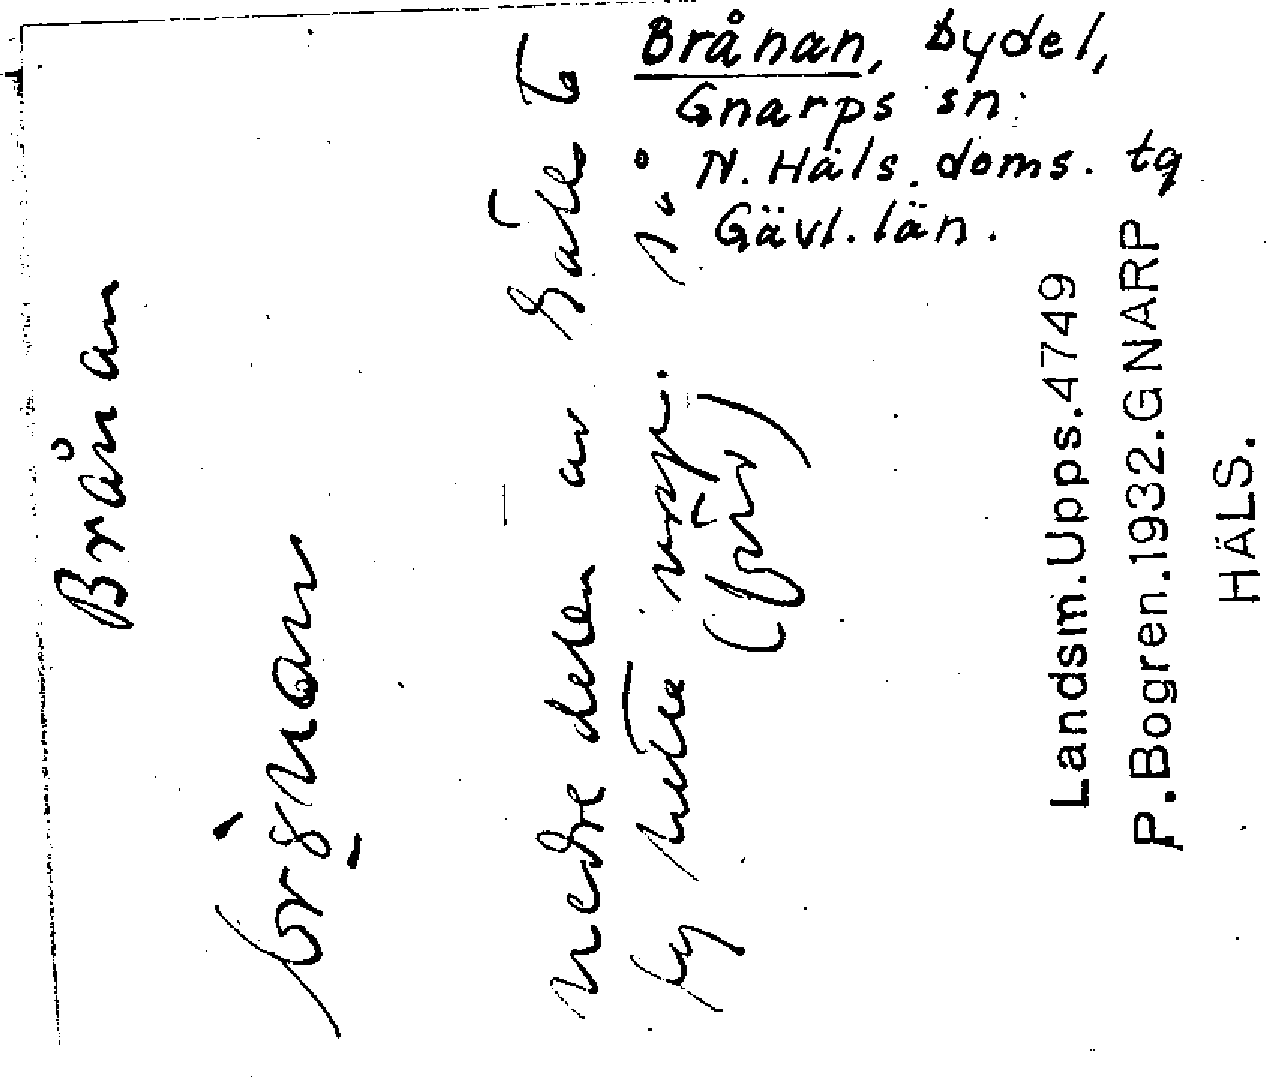 Brånan, bydel,
Gnarps sn:
N. Häls. doms. tq
Gävl. län.
Brånan
nedre delen av Gälle
by
Landsm. Upps. 4749
P. Bogren. 1932. GNARP
HÄLS.